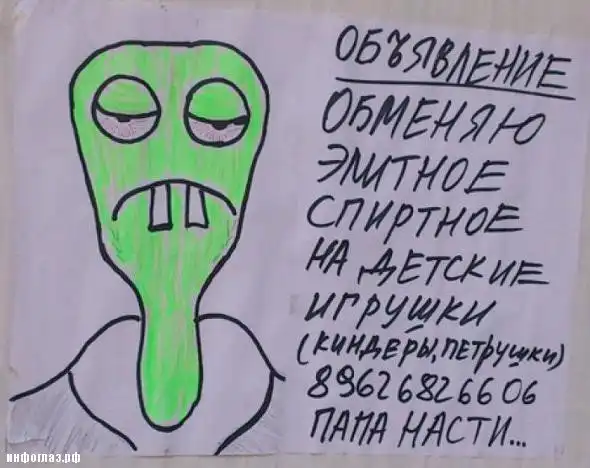 ОБЪЯВЛЕНИЕ
ОБМЕНЯЮ
ЭЛИТНОЕ
СПИРТНОЕ
НА ДЕТСКИЕ
ИГРУШКИ
(КИНДЕРЫ, ПЕТРУШКИ)
89626826606
ПАПА НАСТИ...
инфоглаз.рф